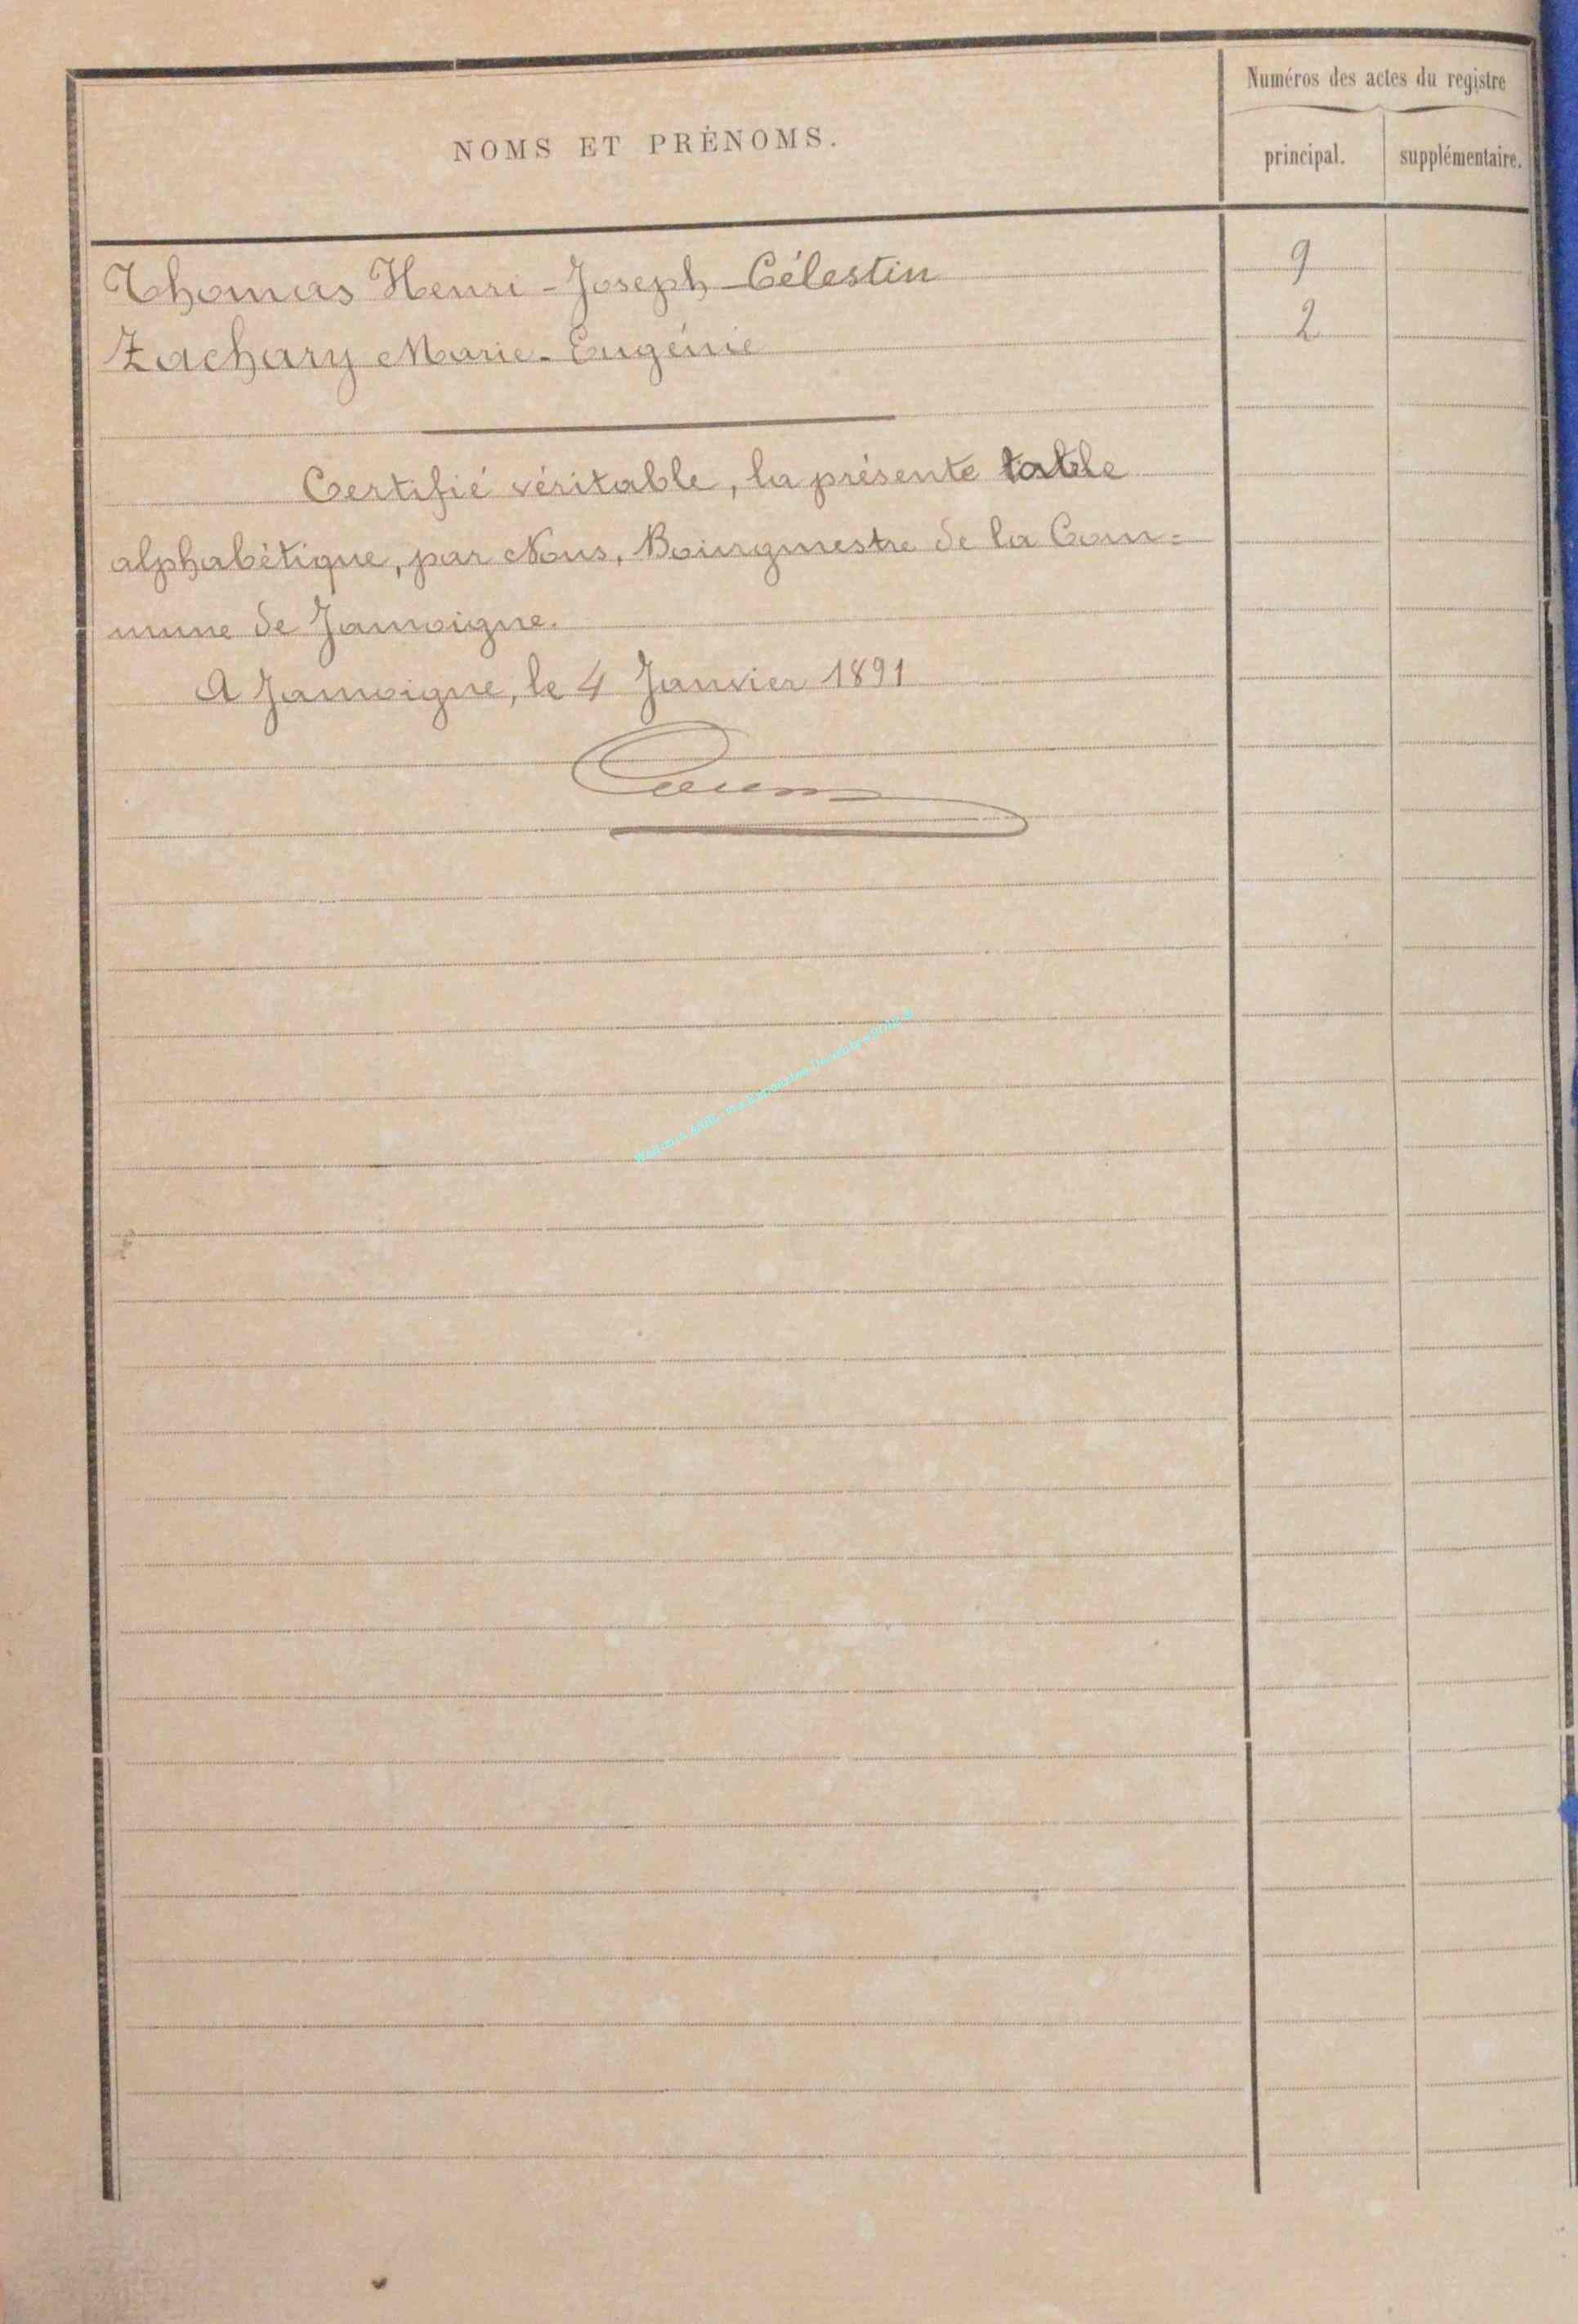 Numéros des actes du registre
NOMS ET PRÉNOMS.
principal. supplémentaire.
Thomas Henri-Joseph-Célestin 9
Zachary Marie-Eugénie 2
Certifié véritable, la présente table
alphabétique, par Nous, Bourgmestre de la Com=
mune de Jamoigne.
A Jamoigne, le 4 Janvier 1891